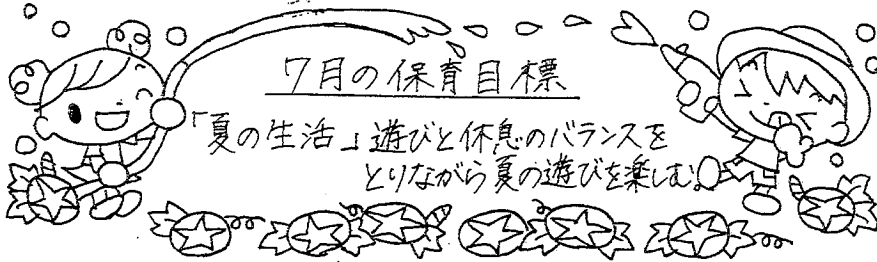 7月の保育目標
「夏の生活」遊びと休息のバランスを
とりながら夏の遊びを楽しむ。